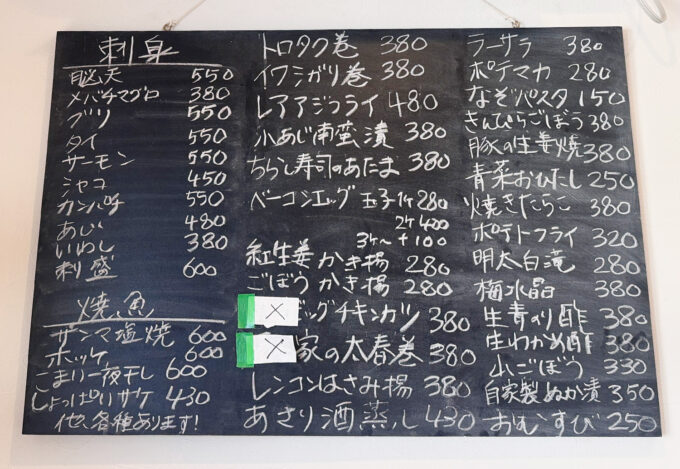 刺身
脳天 550
メバチマグロ 380
ブリ 550
タイ 550
サーモン 550
シャコ 450
カンパチ 550
あじ 480
いわし 380
刺盛 600
焼魚
サンマ塩焼 600
ホッケ 600
こまい一夜干し 600
しょっぱいサケ 430
他、各種あります!
トロタク巻 380
イワシガリ巻 380
レアアジフライ 480
小あじ南蛮漬 380
ちらし寿司のあたま 380
ベーコンエッグ 玉子1ケ 280
2ケ 400
3ケ~ +100
紅生姜 かき揚 280
ごぼう かき揚 280
× ビッグチキンカツ 380
× 家の大春巻 380
レンコンはさみ揚 380
あさり酒蒸し 430
ラーサラ 380
ポテマカ 280
なぞパスタ 150
きんぴらごぼう 380
豚の生姜焼 380
青菜おひたし 250
焼きたらこ 380
ポテトフライ 320
明太白滝 280
梅水晶 380
生青のり酢 380
生わかめ酢 380
山ごぼう 330
自家製ぬか漬 350
おむすび 250